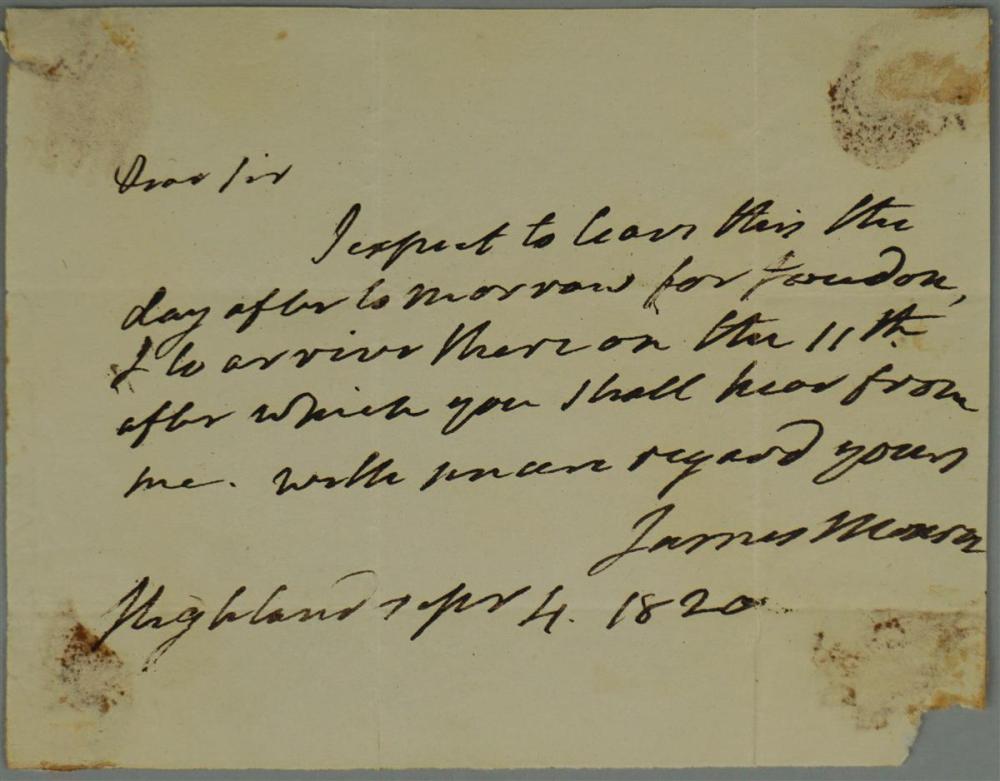 Dear Sir
I expect to leave this the
day after to morrow for Loudon,
& to arrive there on the 11th.
after which you shall hear from
me. with sincere regard yours
James Monroe
Highland Sepr 4. 1820